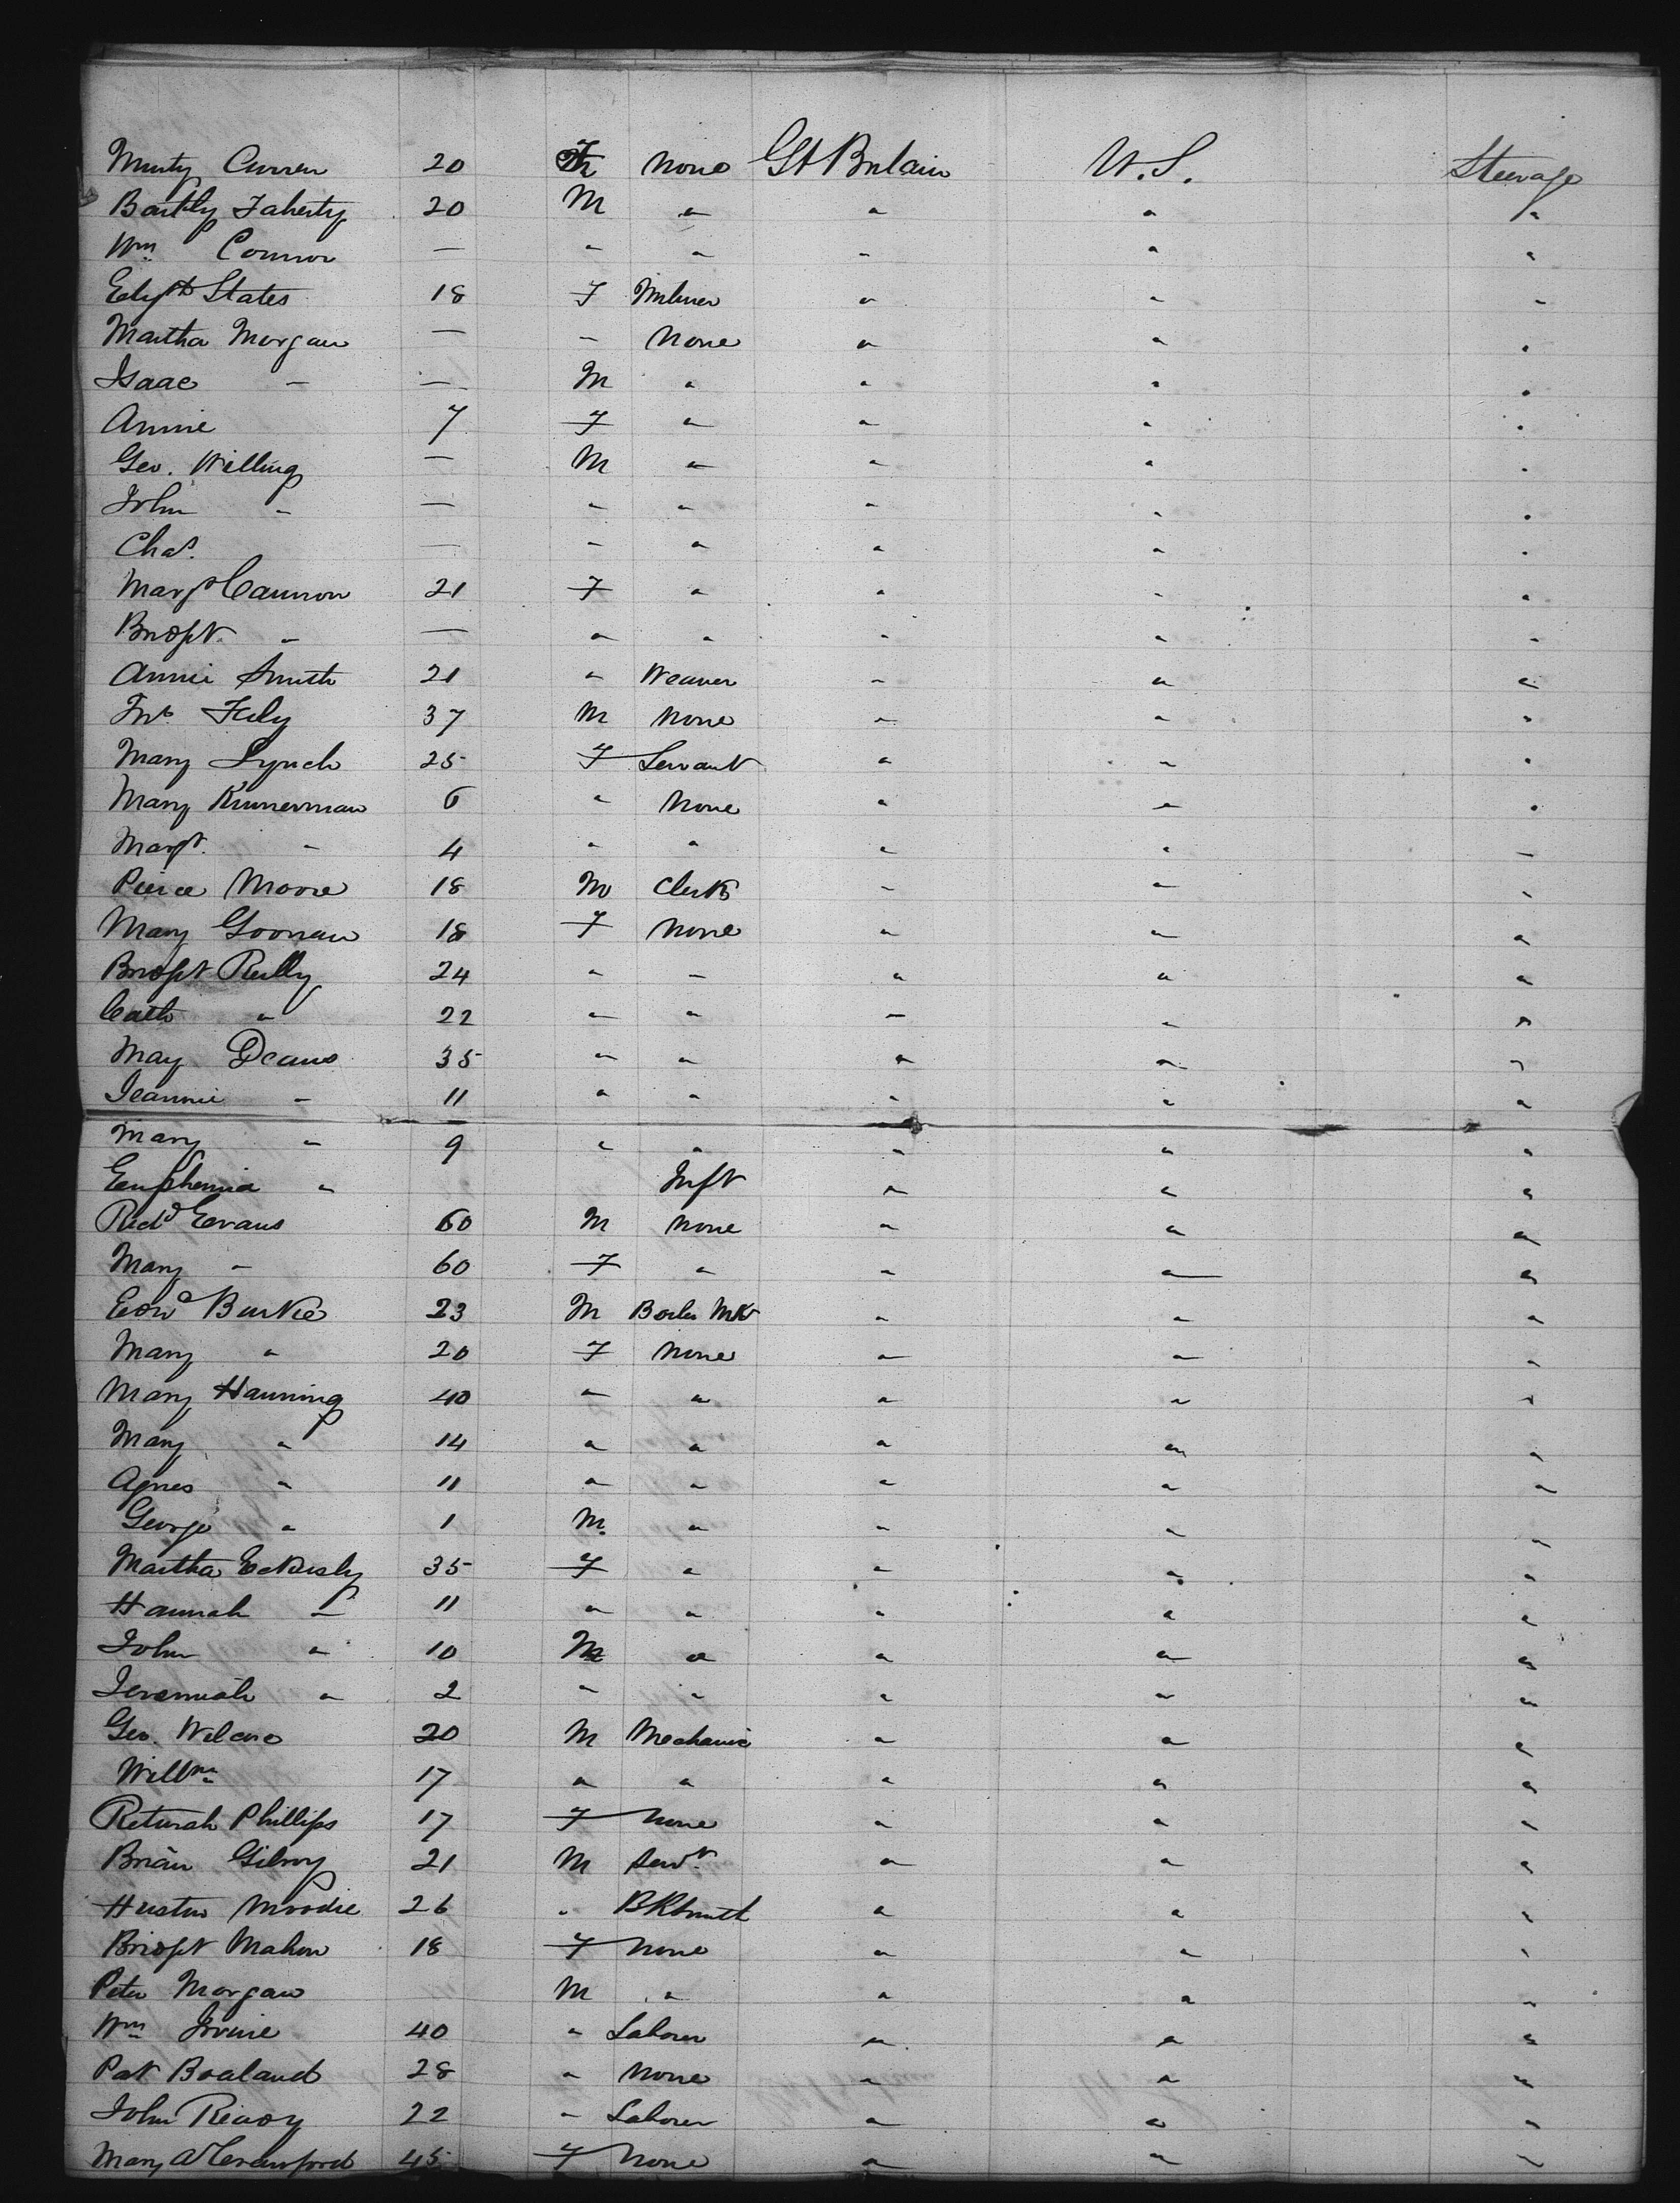 Curren 20 F None Gt Britain U.S. Steerage
Bartly Faherty 20 M " " " "
Wm Connor — " " " " "
States 18 F Milliner " " "
Martha Morgan — " None " " "
Isaac " — M " " " "
Annie 7 F " " " "
Geo. Willing — M " " " "
John " — " " " " "
Chas. — " " " " "
Margt Cannon 21 F " " " "
Bridgt " — " " " " "
Annie Smith 21 " Weaver " " "
Jno. 37 M None " " "
Mary Lynch 25 F Servant " " "
Mary Kinnerman 6 " None " " "
Margt. " 4 " " " " "
Pierce Moore 18 M Clerk " " "
Mary Goonan 18 F None " " "
Bridgt Reilly 24 " " " " "
Cath " 22 " " " " "
May Deans 35 " " " " "
Jeannie " 11 " " " " "
Mary " 9 " " " " "
Euphemia " Inft " " "
Richd Evans 60 M None " " "
Mary " 60 F " " " "
Edwd Burke 23 M Boiler Mkr " " "
Mary " 20 F None " " "
Mary Hanning 40 " " " " "
Mary " 14 " " " " "
Agnes " 11 " " " " "
George " 1 M " " " "
Martha Eckersly 35 F " " " "
Hannah " 11 " " " " "
John " 10 M " " " "
Jeremiah " 2 " " " " "
Geo. 20 M Mechanic " " "
Willm " 17 " " " " "
Returah Phillips 17 F None " " "
Brian Gilroy 21 M Servt. " " "
Moodie 26 " Bksmith " " "
Bridgt Mahon 18 F None " " "
Peter Morgan M " " " "
Wm Irvine 40 " Laborer " " "
Pat Boaland 28 " None " " "
John Ready 22 " Laborer " " "
Mary A Crawford 45 F None " " "